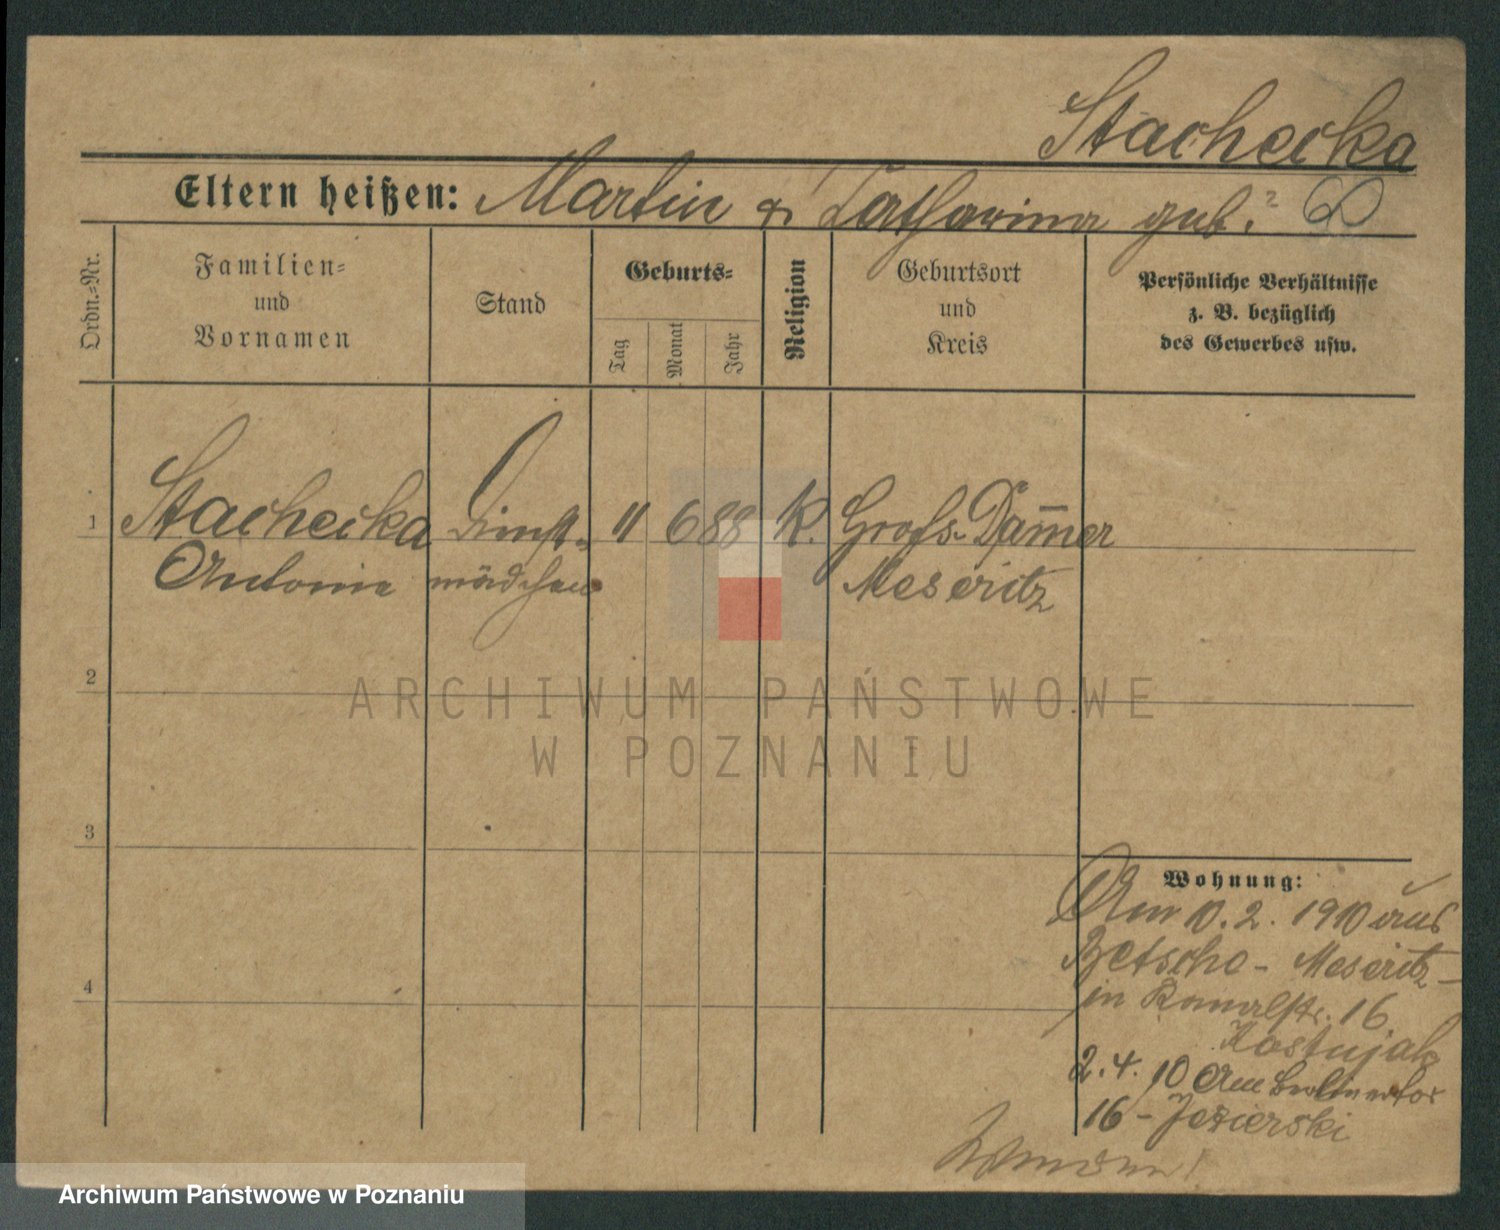 Stachecka
Eltern heißen: Martin & Catharina geb. ? 60
Ordn.-Nr.
Familien- und Vornamen
Stand
Geburts-
Tag
Monat
Jahr
Religion
Geburtsort und Kreis
Persönliche Verhältnisse z. B. bezüglich des Gewerbes usw.
1 Stachecka Dienst- 11 6 88 K. Gross-Dam̅er
Antonie mädchen Meseritz
2
3
4
Wohnung:
Am 10.2. 1910 aus
Betsche - Meseritz -
in Kanalstr. 16.
Kostujak
2.4.10 Am Berlinertor
16 - Jezierski
ARCHIWUM PAŃSTWOWE
W POZNANIU
Archiwum Państwowe w Poznaniu